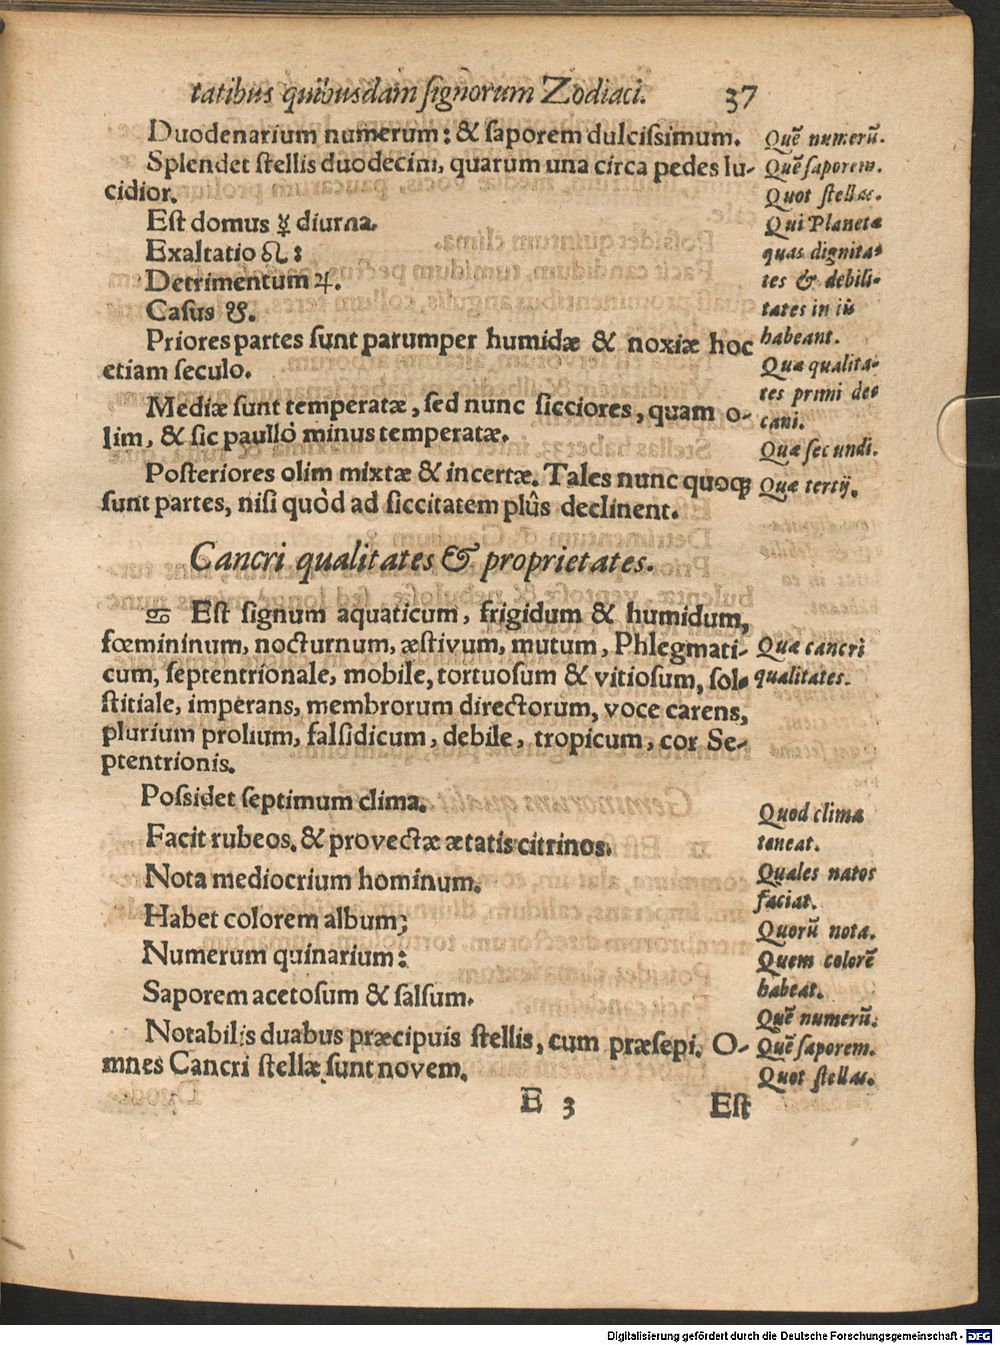 tatibus quibusdam signorum Zodiaci. 37
Duodenarium numerum: & saporem dulcissimum.
Splendet stellis duodecim, quarum una circa pedes lu-
cidior.
Est domus ☿ diurna.
Exaltatio ☊:
Detrimentum ♃.
Casus ☋.
Priores partes sunt parumper humidæ & noxiæ hoc
etiam seculo.
Mediæ sunt temperatæ, sed nunc sicciores, quam o-
lim, & sic paullò minus temperatæ.
Posteriores olim mixtæ & incertæ. Tales nunc quoqꝫ
sunt partes, nisi quòd ad siccitatem plûs declinent.
Quē numerū.
Quē saporem.
Quot stellas.
Qui Planetæ
quas dignita-
tes & debili-
tates in iis
habeant.
Quæ qualita-
tes primi de-
cani.
Quæ secundi.
Quæ tertij.
Cancri qualitates & proprietates.
♋ Est signum aquaticum, frigidum & humidum,
fœmininum, nocturnum, æstivum, mutum, Phlegmati-
cum, septentrionale, mobile, tortuosum & vitiosum, sol-
stitiale, imperans, membrorum directorum, voce carens,
plurium prolium, falsidicum, debile, tropicum, cor Se-
ptentrionis.
Possidet septimum clima.
Facit rubeos, & provectæ ætatis citrinos.
Nota mediocrium hominum.
Habet colorem album;
Numerum quinarium:
Saporem acetosum & salsum.
Notabilis duabus præcipuis stellis, cum præsepi. O-
mnes Cancri stellæ sunt novem.
Quæ cancri
qualitates.
Quod clima
teneat.
Quales natos
faciat.
Quorū nota.
Quem colorē
habeat.
Quē numerū.
Quē saporem.
Quot stellas.
E 3 Est
Digitalisierung gefördert durch die Deutsche Forschungsgemeinschaft - DFG